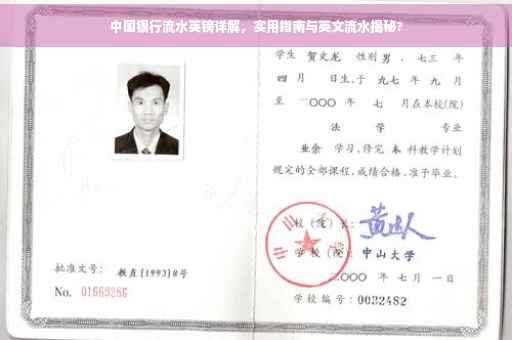 中国银行流水英镑详解，实用指南与英文流水揭秘?
学生 贺文龙 性别 男 、七三 年
四 月 日生,于 九七 年 九 月
至 二〇〇〇 年 七 月在本校(院)
法 学 专业
业余 学习,修完 本 科教学计划
规定的全部课程,成绩合格,准予毕业。
校 (院) 长:
学 校 (院): 中山大学
二〇〇〇 年 七 月 一 日
批准文号: 教直[1993]8号
No. 01663286
学校编号: 0032482